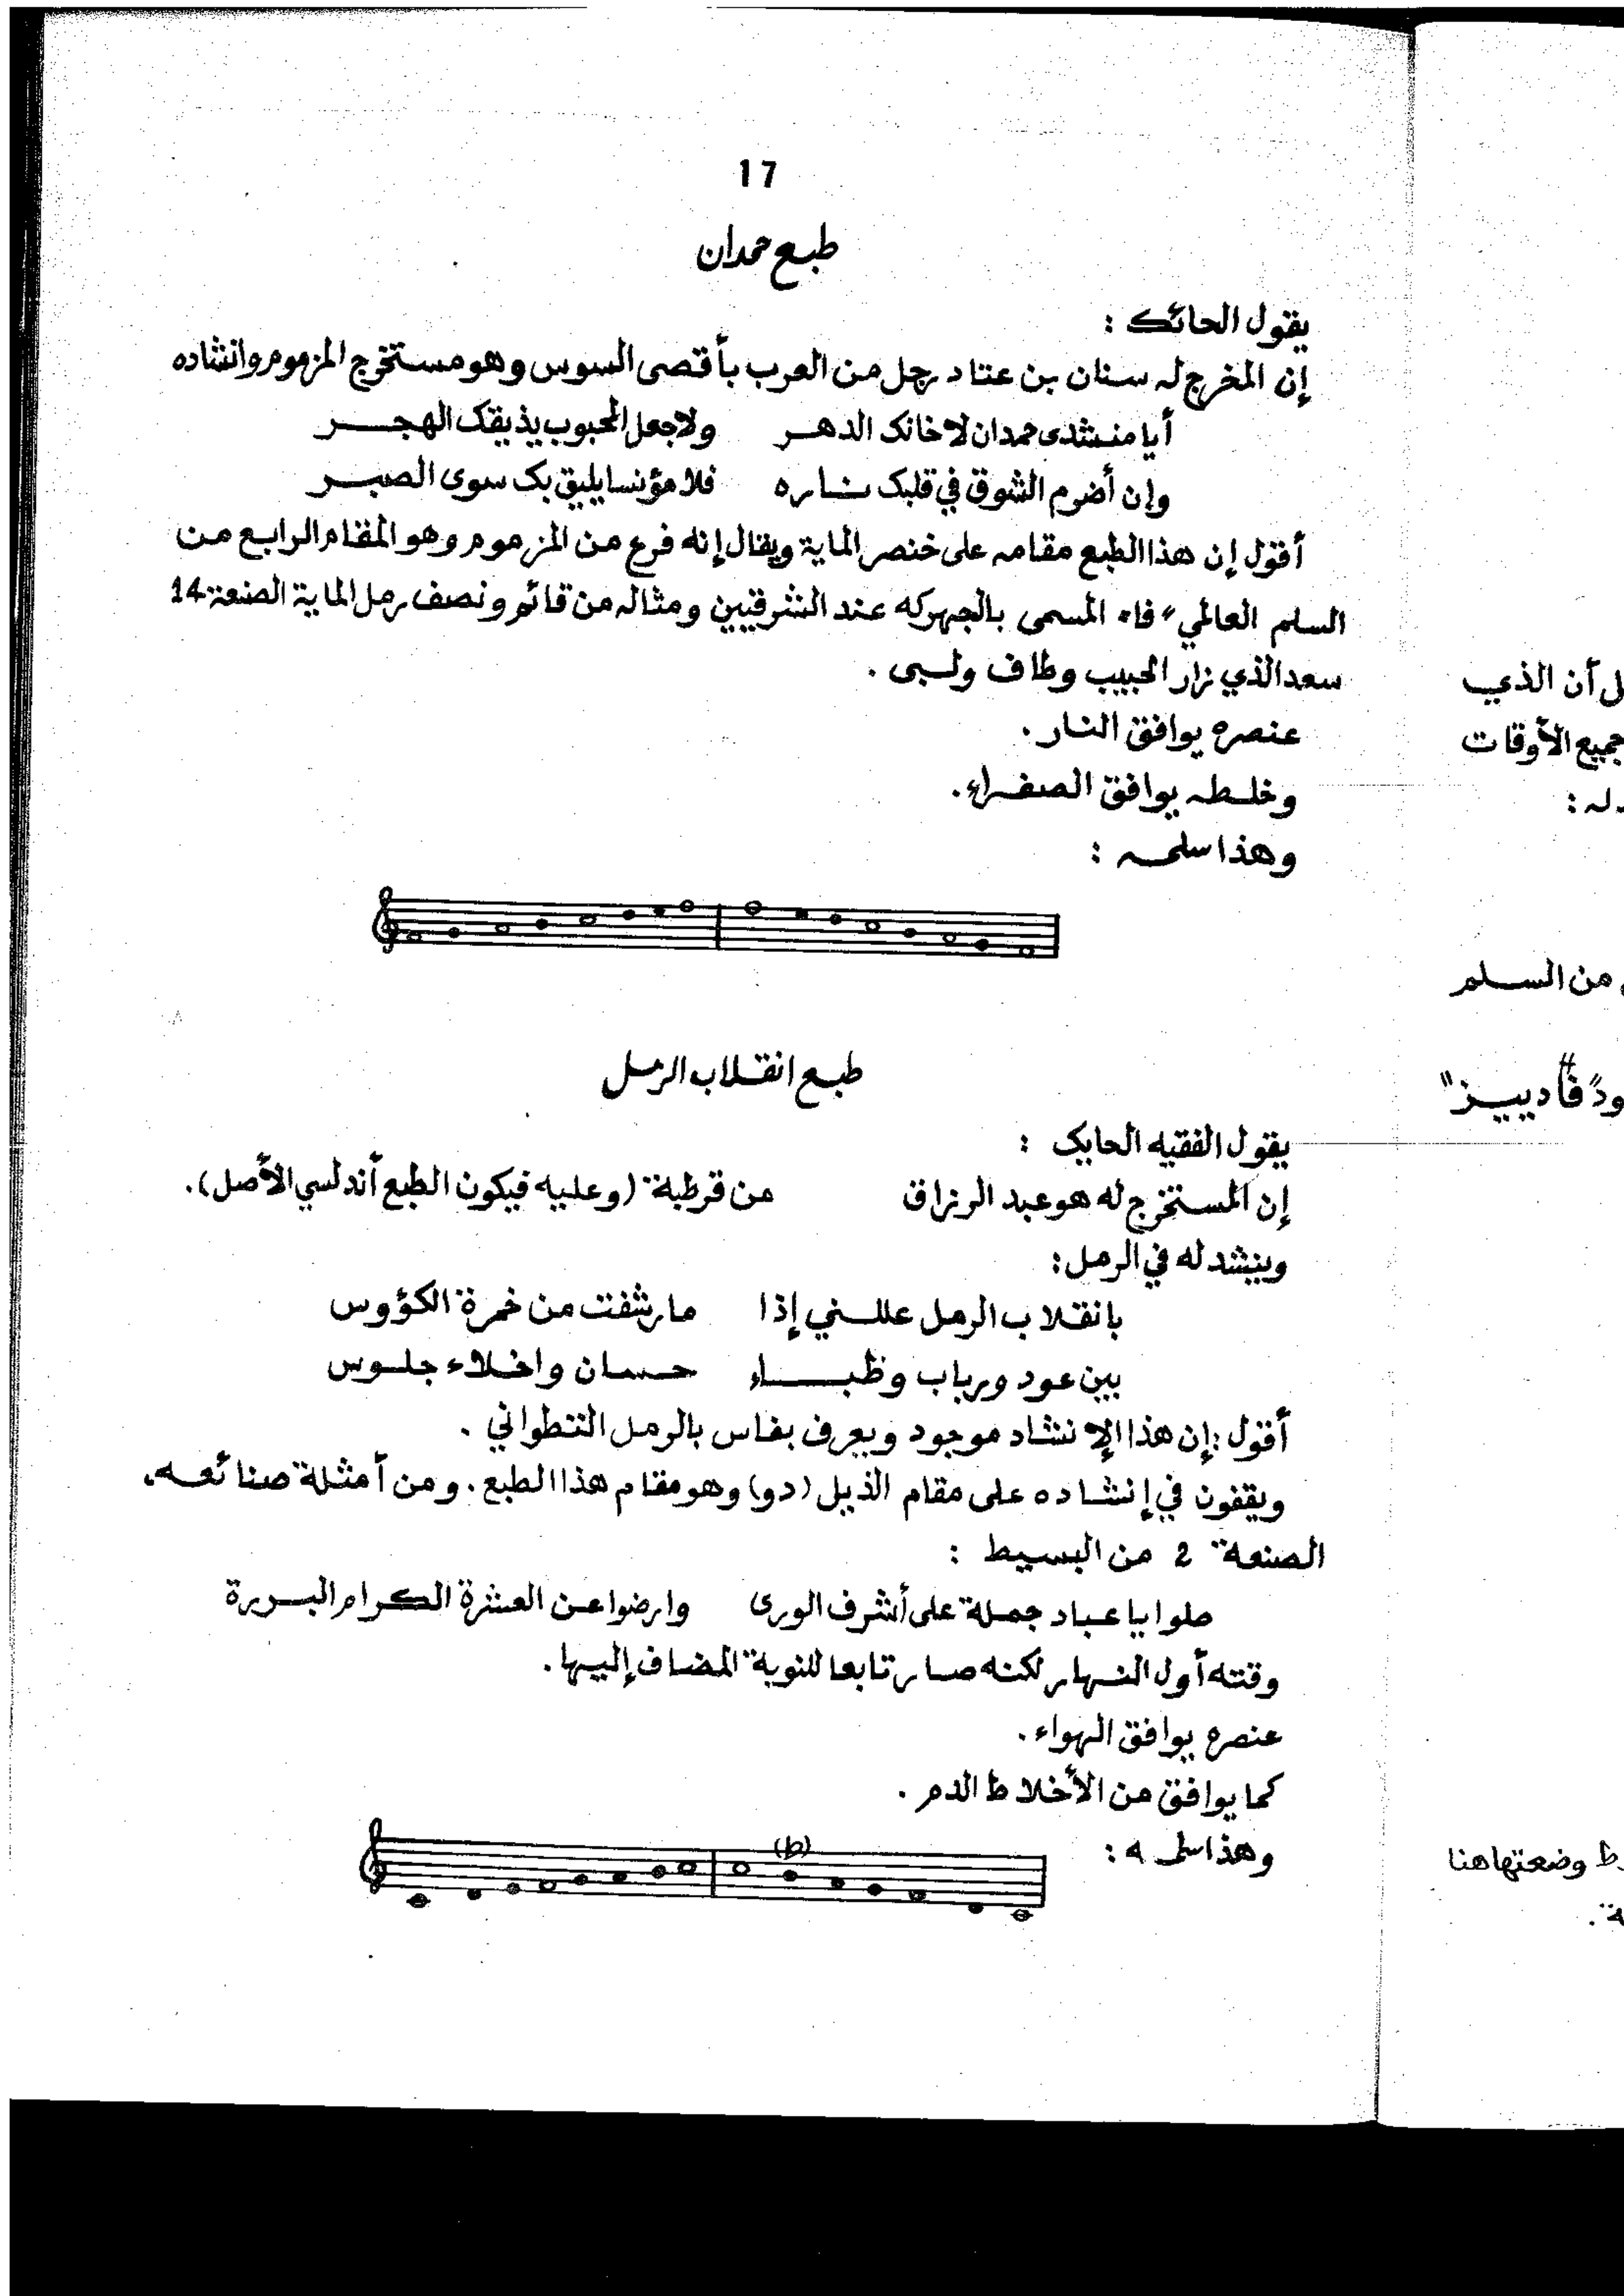 17
طبع حمدان
يقول الحائك :
إن المخرج له سنان بن عتاد رجل من العرب بأقصى السوس وهو مستخرج المزموم وانشاده
أيا منشدى حمدان لا خانك الدهر ولا جعل المحبوب يذيقك الهجر
وإن أضرم الشوق في قلبك ناره فلا مؤنسا يليق بك سوى الصبر
أقول إن هذا الطبع مقامه على خنصر الماية ويقال إنه فرع من المزموم وهو المقام الرابع من
السلم العالمي "فا" المسمى بالجهركه عند الشرقيين ومثاله من قائم ونصف رمل الماية الصنعة 14
سعد الذي زار الحبيب وطاف ولبى .
عنصره يوافق النار .
وخلطه يوافق الصفراء .
وهذا سلمه :
طبع انقلاب الرمل
يقول الفقيه الحايك :
إن المستخرج له هو عبد الرزاق من قرطبة (وعليه فيكون الطبع أندلسي الأصل) .
وينشد له في الرمل :
بانقلاب الرمل عللني إذا ما رشفت من خمرة الكؤوس
بين عود ورباب وظباء حسان واخلاء جلوس
أقول : إن هذا الإنشاد موجود ويعرف بفاس بالرمل التتطواني .
ويقفون في إنشاده على مقام الذيل (دو) وهو مقام هذا الطبع . ومن أمثلة صنائعه،
الصنعة 2 من البسيط :
صلوا يا عباد جملة على أشرف الورى وارضوا عن العشرة الكرام البررة
وقته أول النهار لكنه صار تابعا للنوبة المضاف إليها .
عنصره يوافق الهواء .
كما يوافق من الأخلاط الدم .
وهذا سلمه :
(b)
أن الذي
جميع الأوقات
له :
من السلم
"فا دييز"
وضعتها هنا